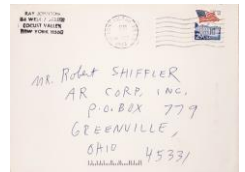 RAY JOHNSON
LOCUST VALLEY
NEW YORK 11560
MR. Robert SHIFFLER
AR CORP, INC.
P.O. BOX 779
GREENVILLE,
OHIO 45331